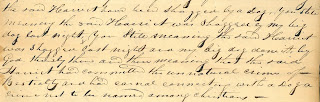 the said Harriet have been shagged by a dog. You still
meaning the said Harriet was shagged by my big
dog last night, You Still meaning the said Harriet
was shagged last night and my big dog done it by
God thereby then and there meaning that the said
Harriet had committed the unnatural crime of
Bestiality and had carnal connection with a dog a
crime not to be named among christians